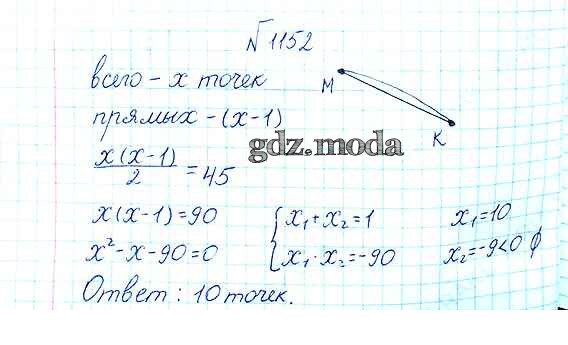 №1152
всего - x точек
M
прямых - (x-1)
K
gdz.moda
x(x-1)/2 = 45
x(x-1)=90 { x₁+x₂=1 x₁=10
x²-x-90=0 x₁·x₂=-90 x₂=-9<0 ∅
Ответ: 10 точек.